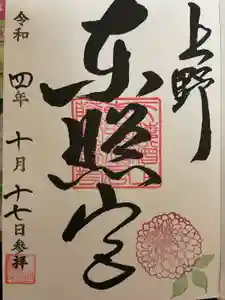 上野
東照宮
令和四年十月十七日参拝